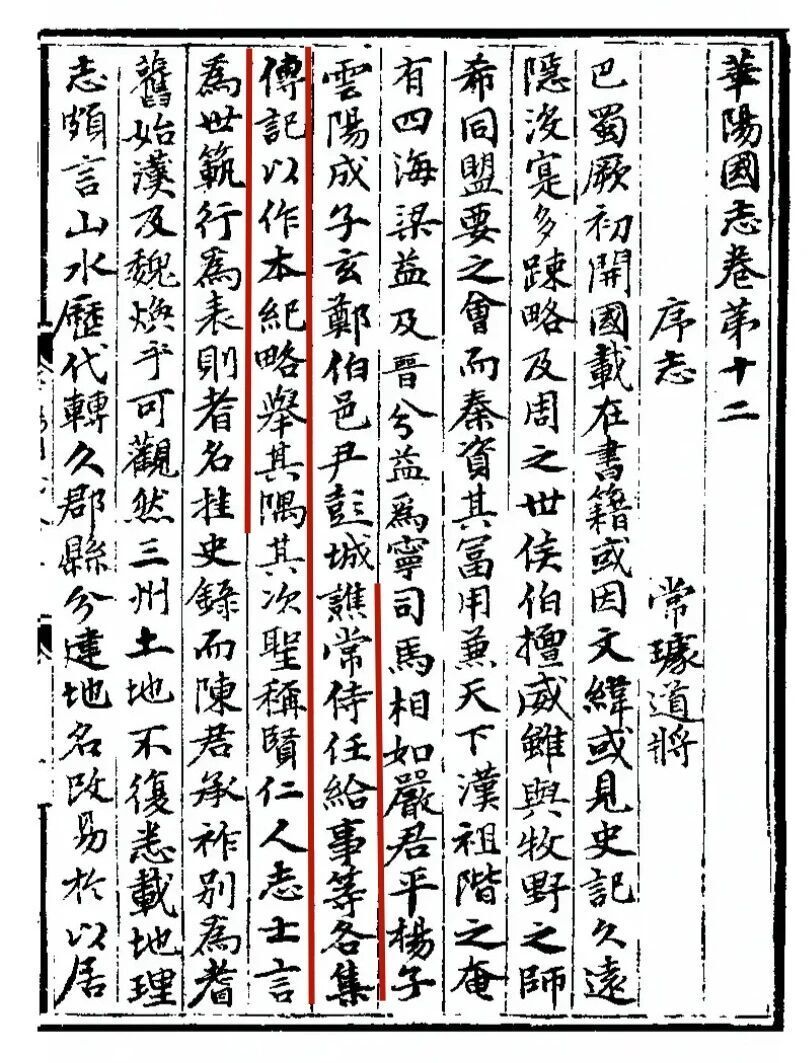 華陽國志卷第十二
序志
常璩道將
巴蜀厥初開國載在書籍或因文緯或見史記久遠
隱没寔多踈略及周之世侯伯擅威雖與牧野之師
希同盟要之會而秦資其冨用兼天下漢祖階之奄
有四海梁益及晉分益爲寧司馬相如嚴君平楊子
雲陽成子玄鄭伯邑尹彭城譙常侍任給事等各集
傳記以作本紀略舉其隅其次聖稱賢仁人志士言
為世範行為表則者名挂史錄而陳君承祚别為耆
舊始漢及魏煥乎可觀然三州土地不復悉載地理
志頗言山水歷代轉久郡縣分建地名改易於以居